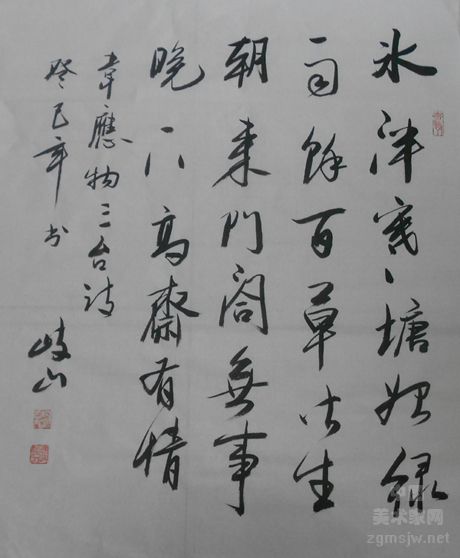 冰泮寒塘始绿
雨餘百草皆生
朝来門閣無事
晚下高齋有情
韋應物三台诗
癸巳年书
岐山
中国
美术家网
zgmsjw.net